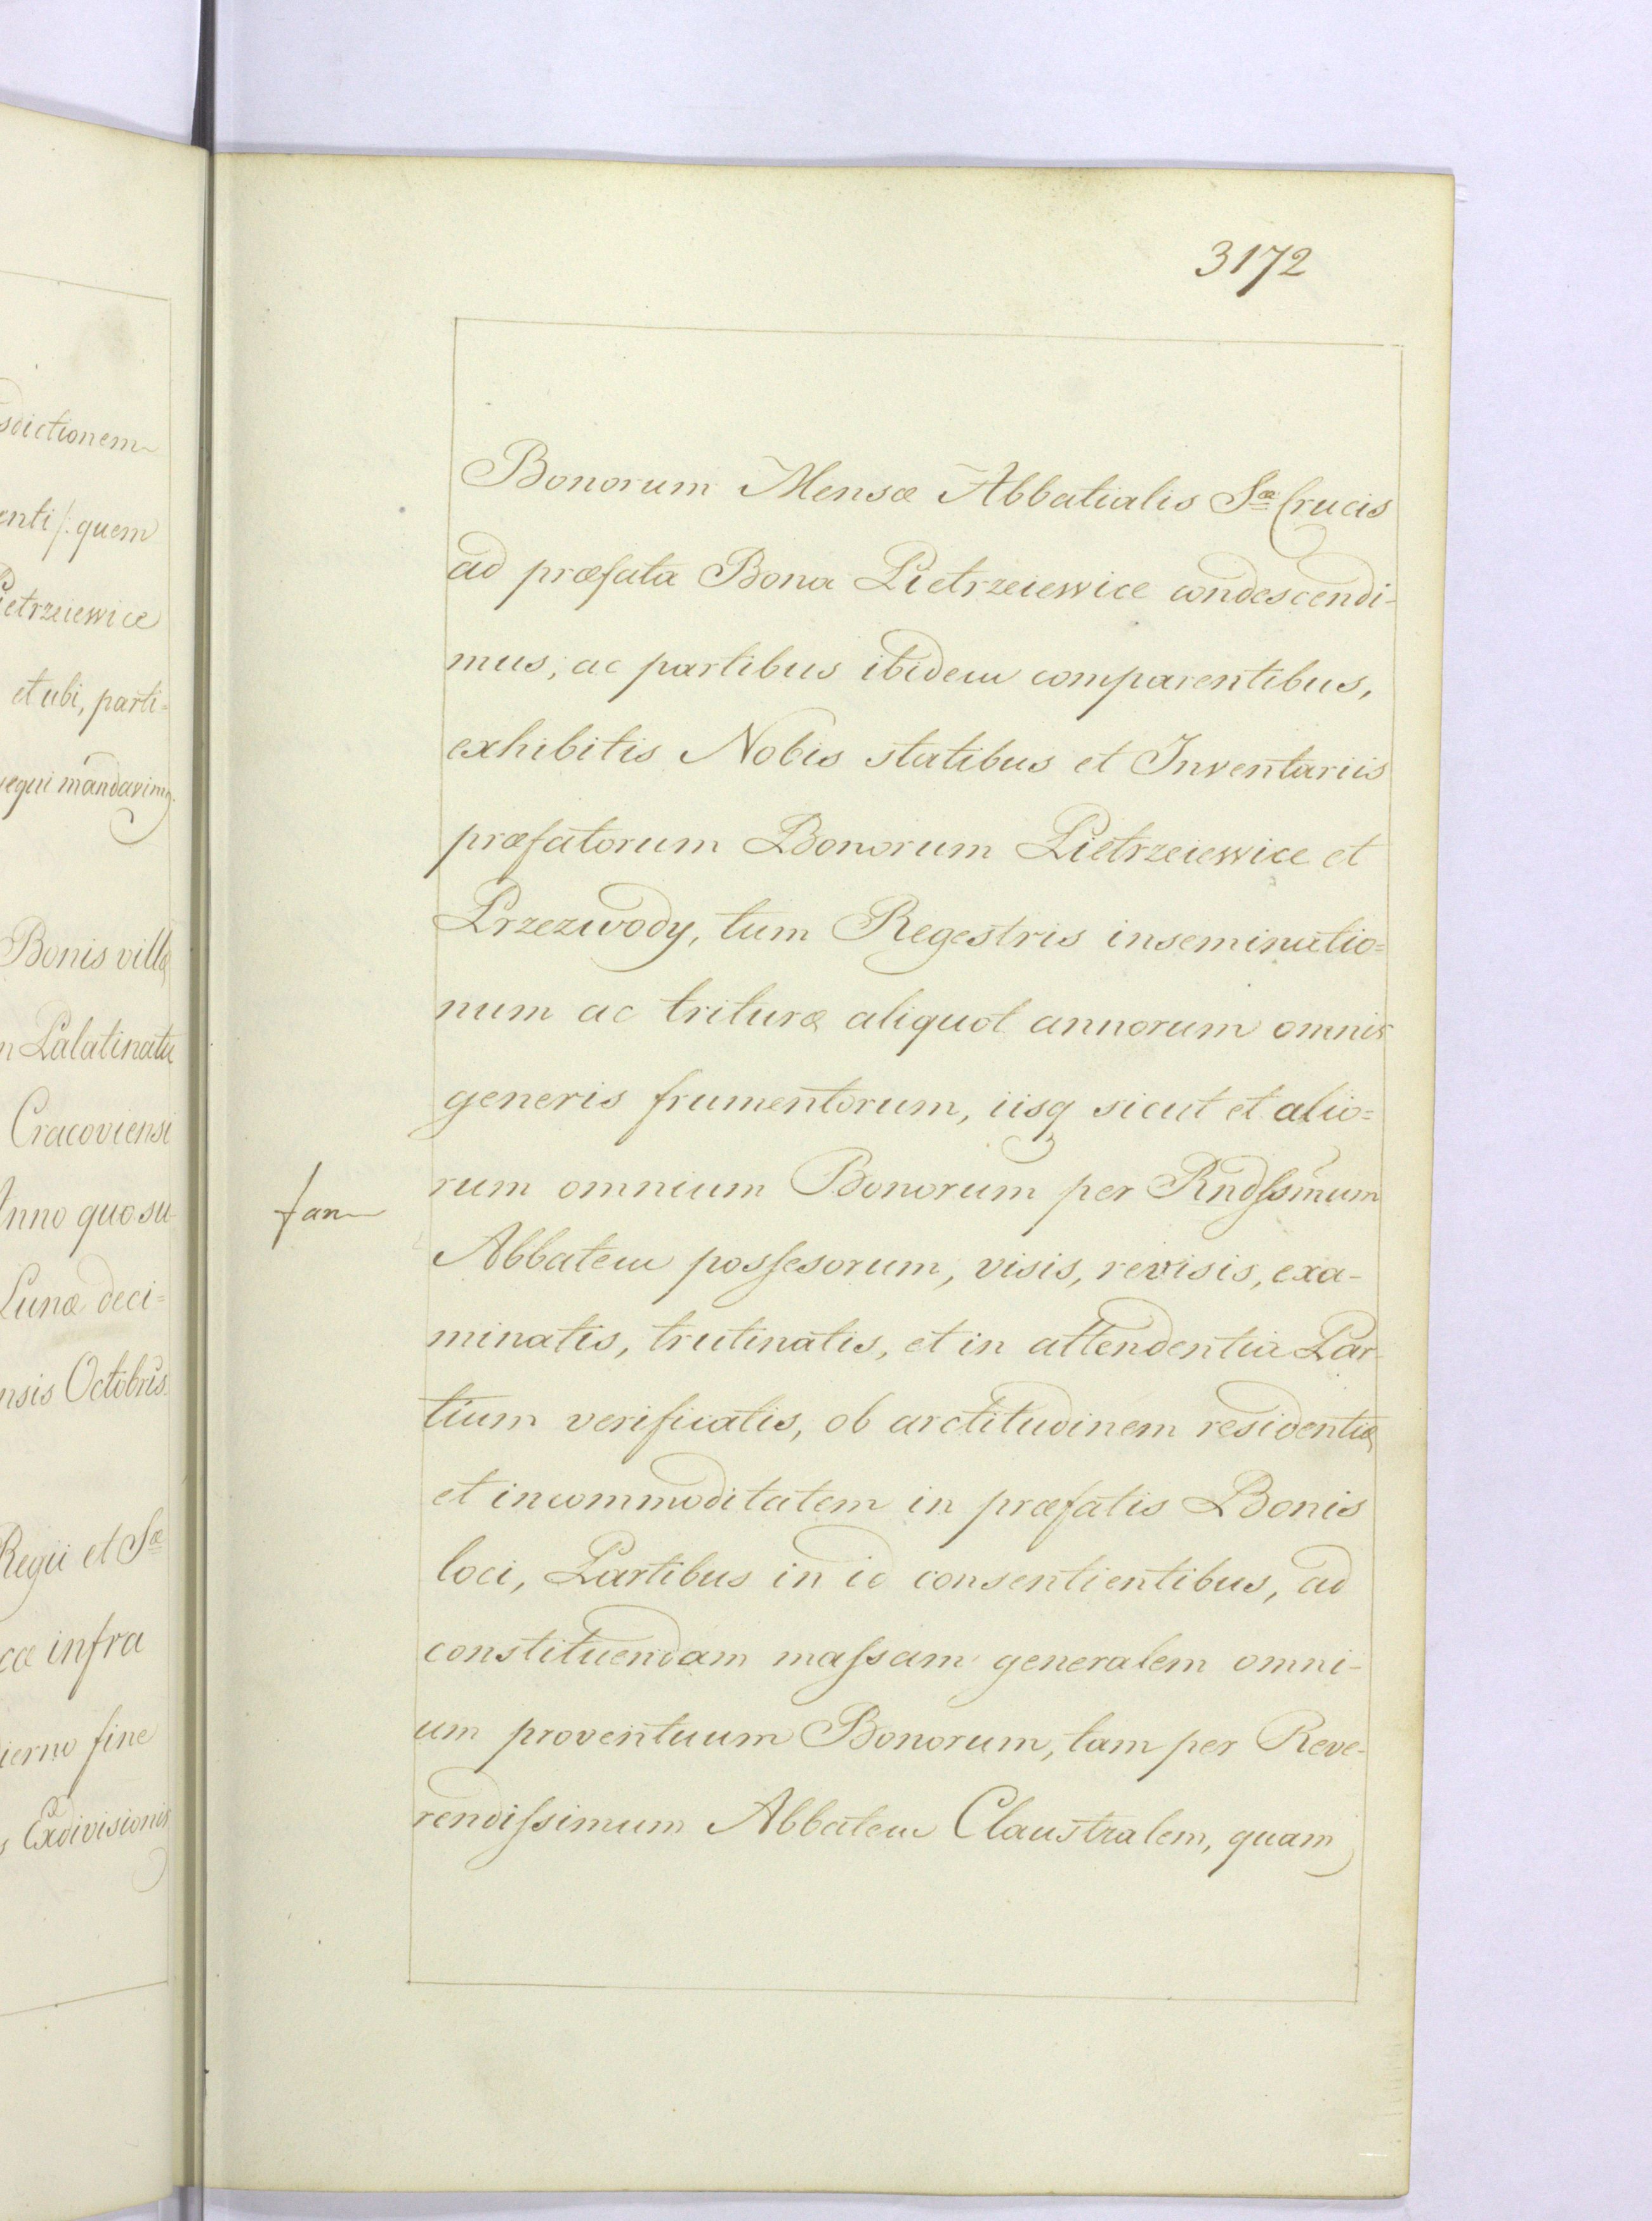 sdictionem
enti /: quem
ietrzeiewice
et ubi, parti=
sequi mandavimq.
Bonis villa
n Palatinatu
Cracoviensi
Anno quo su
Lunæ deci=
nsis Octobris.
Regii et Sæ
ca infra
ierno fine
s Exdivisionis
3172
Bonorum Mensæ Abbatialis Sæ Crucis
ad præfata Bona Pietrzeiewice condescendi-
mus, ac partibus ibidem comparentibus,
exhibitis Nobis statibus et Inventariis
præfatorum Bonorum Pietrzeiewice et
Przezwody, tum Regestris inseminatio=
num ac trituræ aliquot annorum omnis
generis frumentorum, iisq sicut et alio=
rum omnium Bonorum per Rndſsmum
Abbatem poſsesorum, visis, revisis, exa-
minatis, trutinatis, et in attendentia Par-
tium verificatis, ob arctitudinem residentiæ
et incommoditatem in præfatis Bonis
loci, Partibus in id consentientibus, ad
constituendam maſsam generalem omni-
um proventuum Bonorum, tam per Reve-
rendiſsimum Abbatem Claustralem, quam